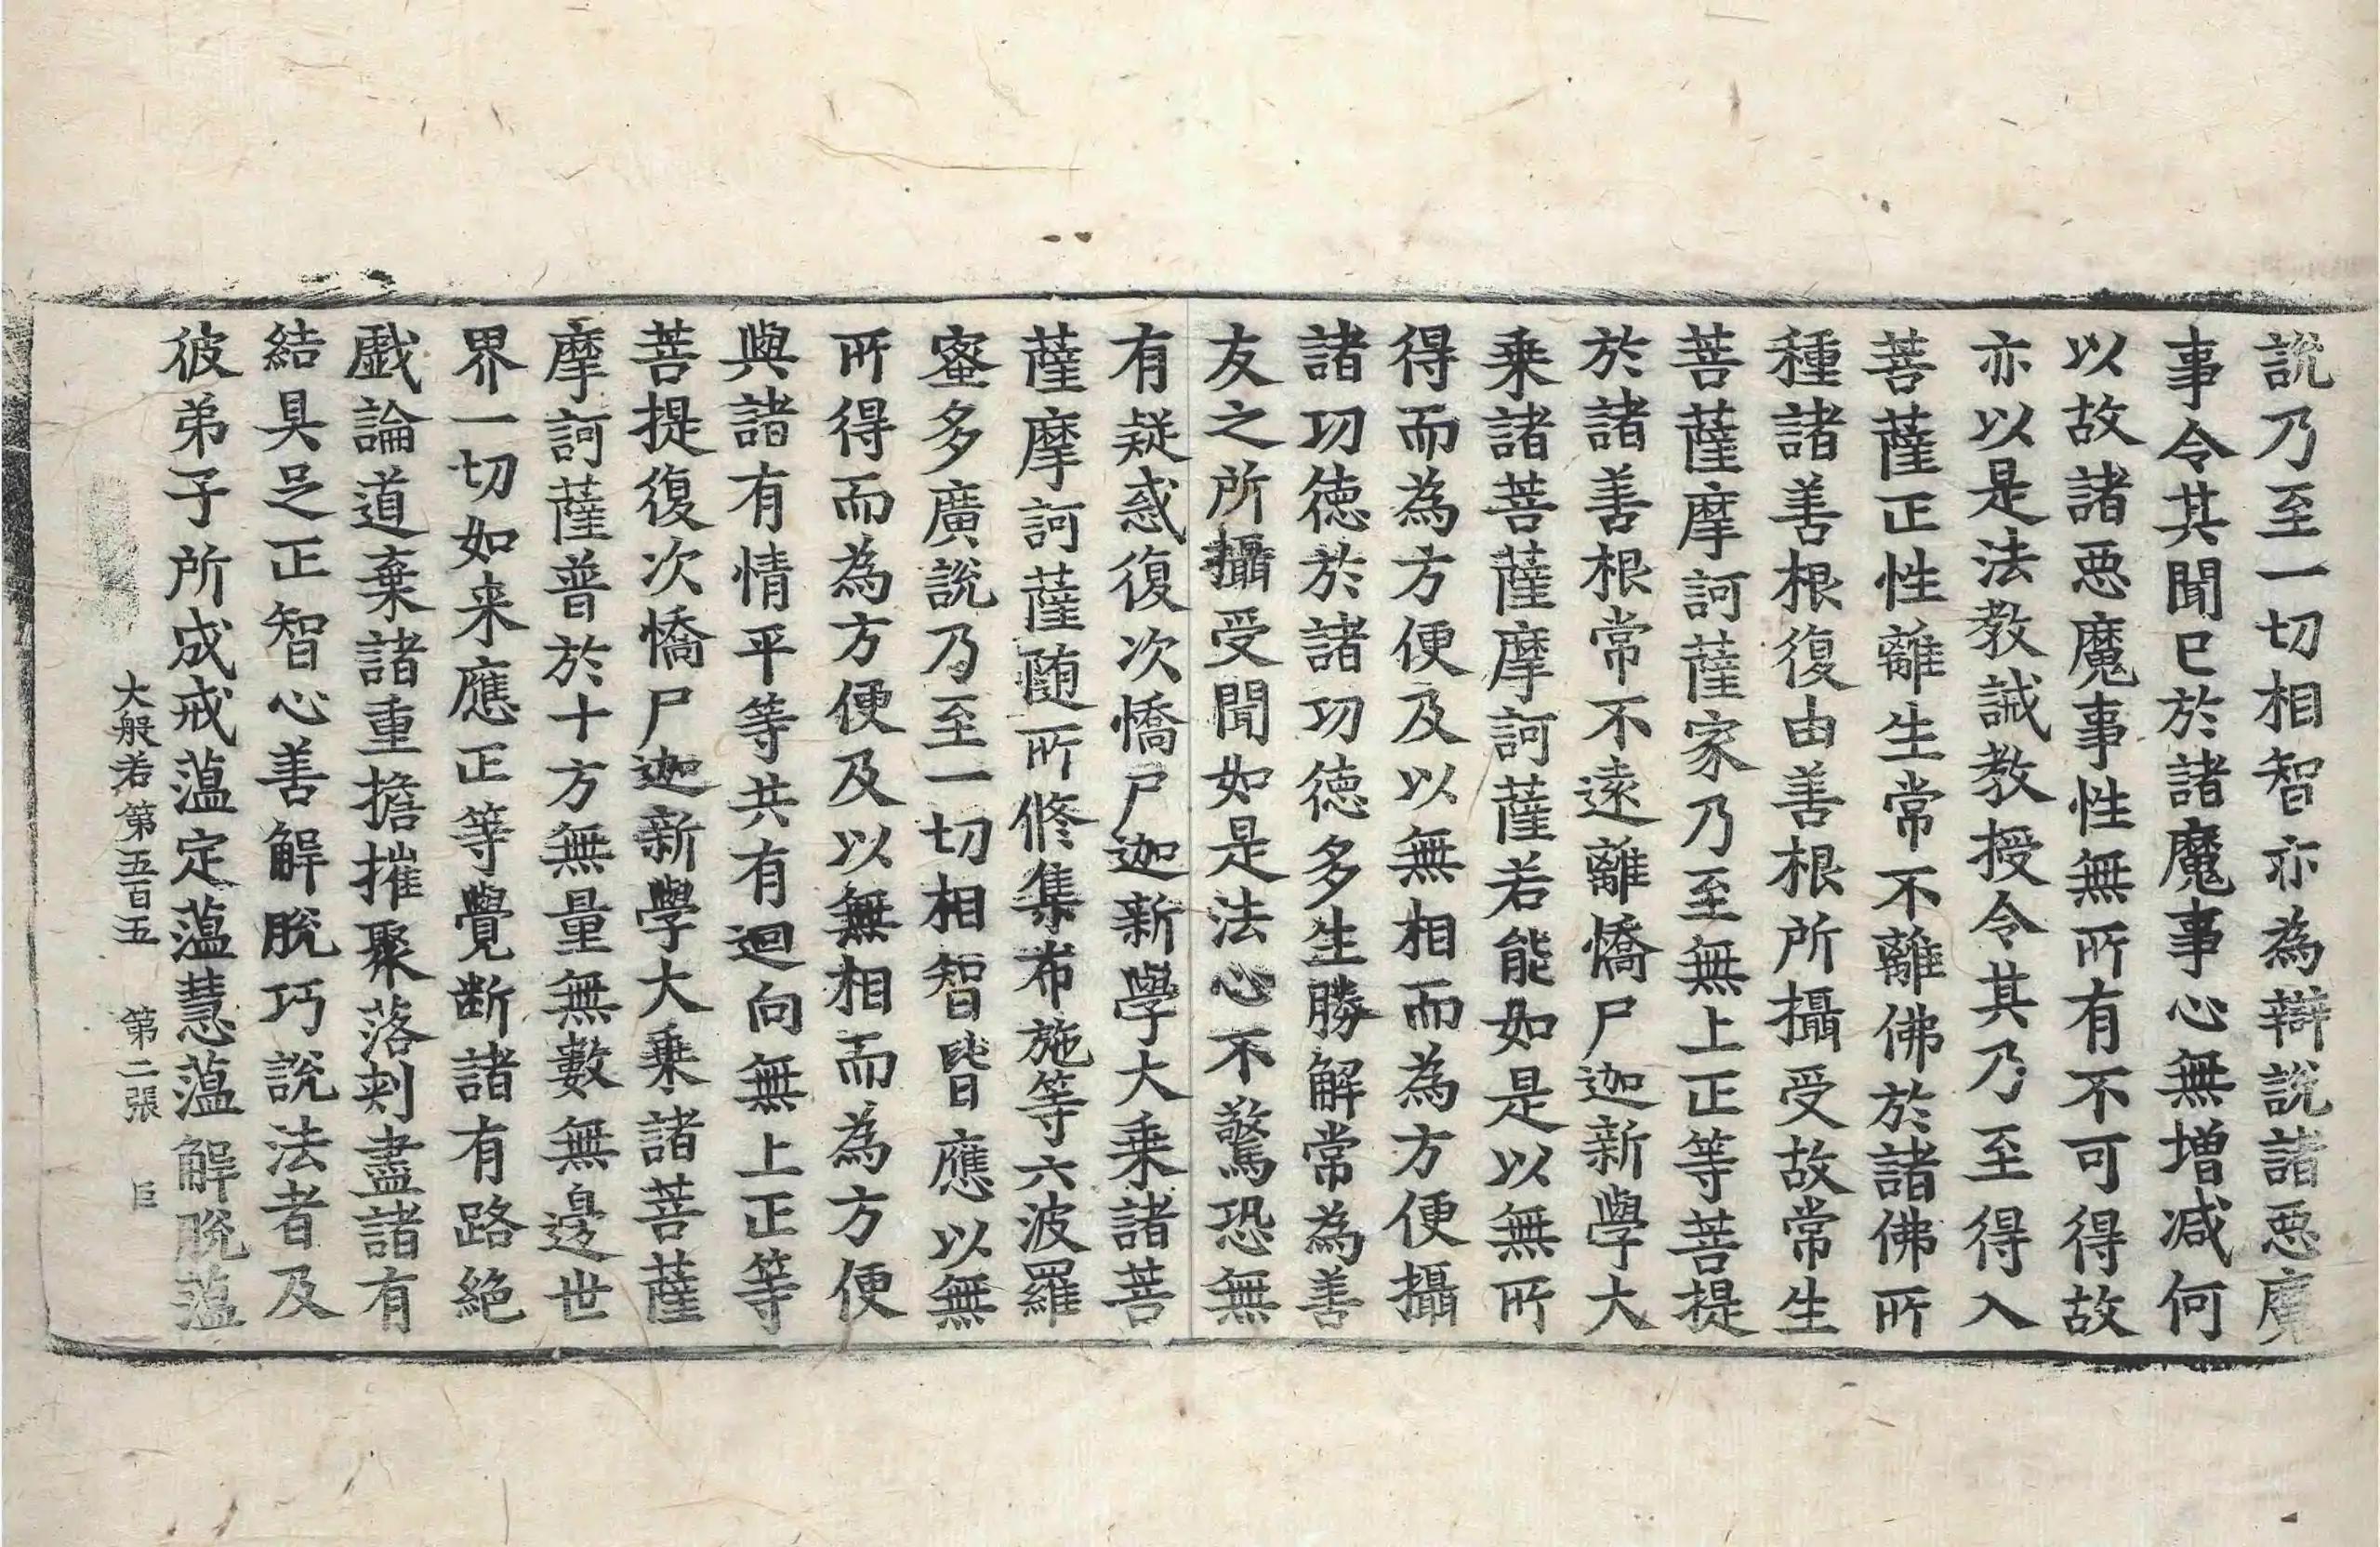 說乃至一切相智亦為辯說諸惡魔
事令其聞已於諸魔事心無增減何
以故諸惡魔事性無所有不可得故
亦以是法教誡教授令其乃至得入
菩薩正性離生常不離佛於諸佛所
種諸善根復由善根所攝受故常生
菩薩摩訶薩家乃至無上正等菩提
於諸善根常不遠離憍尸迦新學大
乘諸菩薩摩訶薩若能如是以無所
得而為方便及以無相而為方便攝
諸功德於諸功德多生勝解常為善
友之所攝受聞如是法心不驚恐無
有疑惑復次憍尸迦新學大乘諸菩
薩摩訶薩随所修集布施等六波羅
蜜多廣說乃至一切相智皆應以無
所得而為方便及以無相而為方便
與諸有情平等共有迴向無上正等
菩提復次憍尸迦新學大乘諸菩薩
摩訶薩普於十方無量無數無邊世
界一切如来應正等覺斷諸有路絕
戲論道棄諸重擔摧聚落刺盡諸有
結具足正智心善解脫巧說法者及
彼弟子所成戒蘊定蘊慧蘊解脫蘊
大般若第五百五 第二張 巨